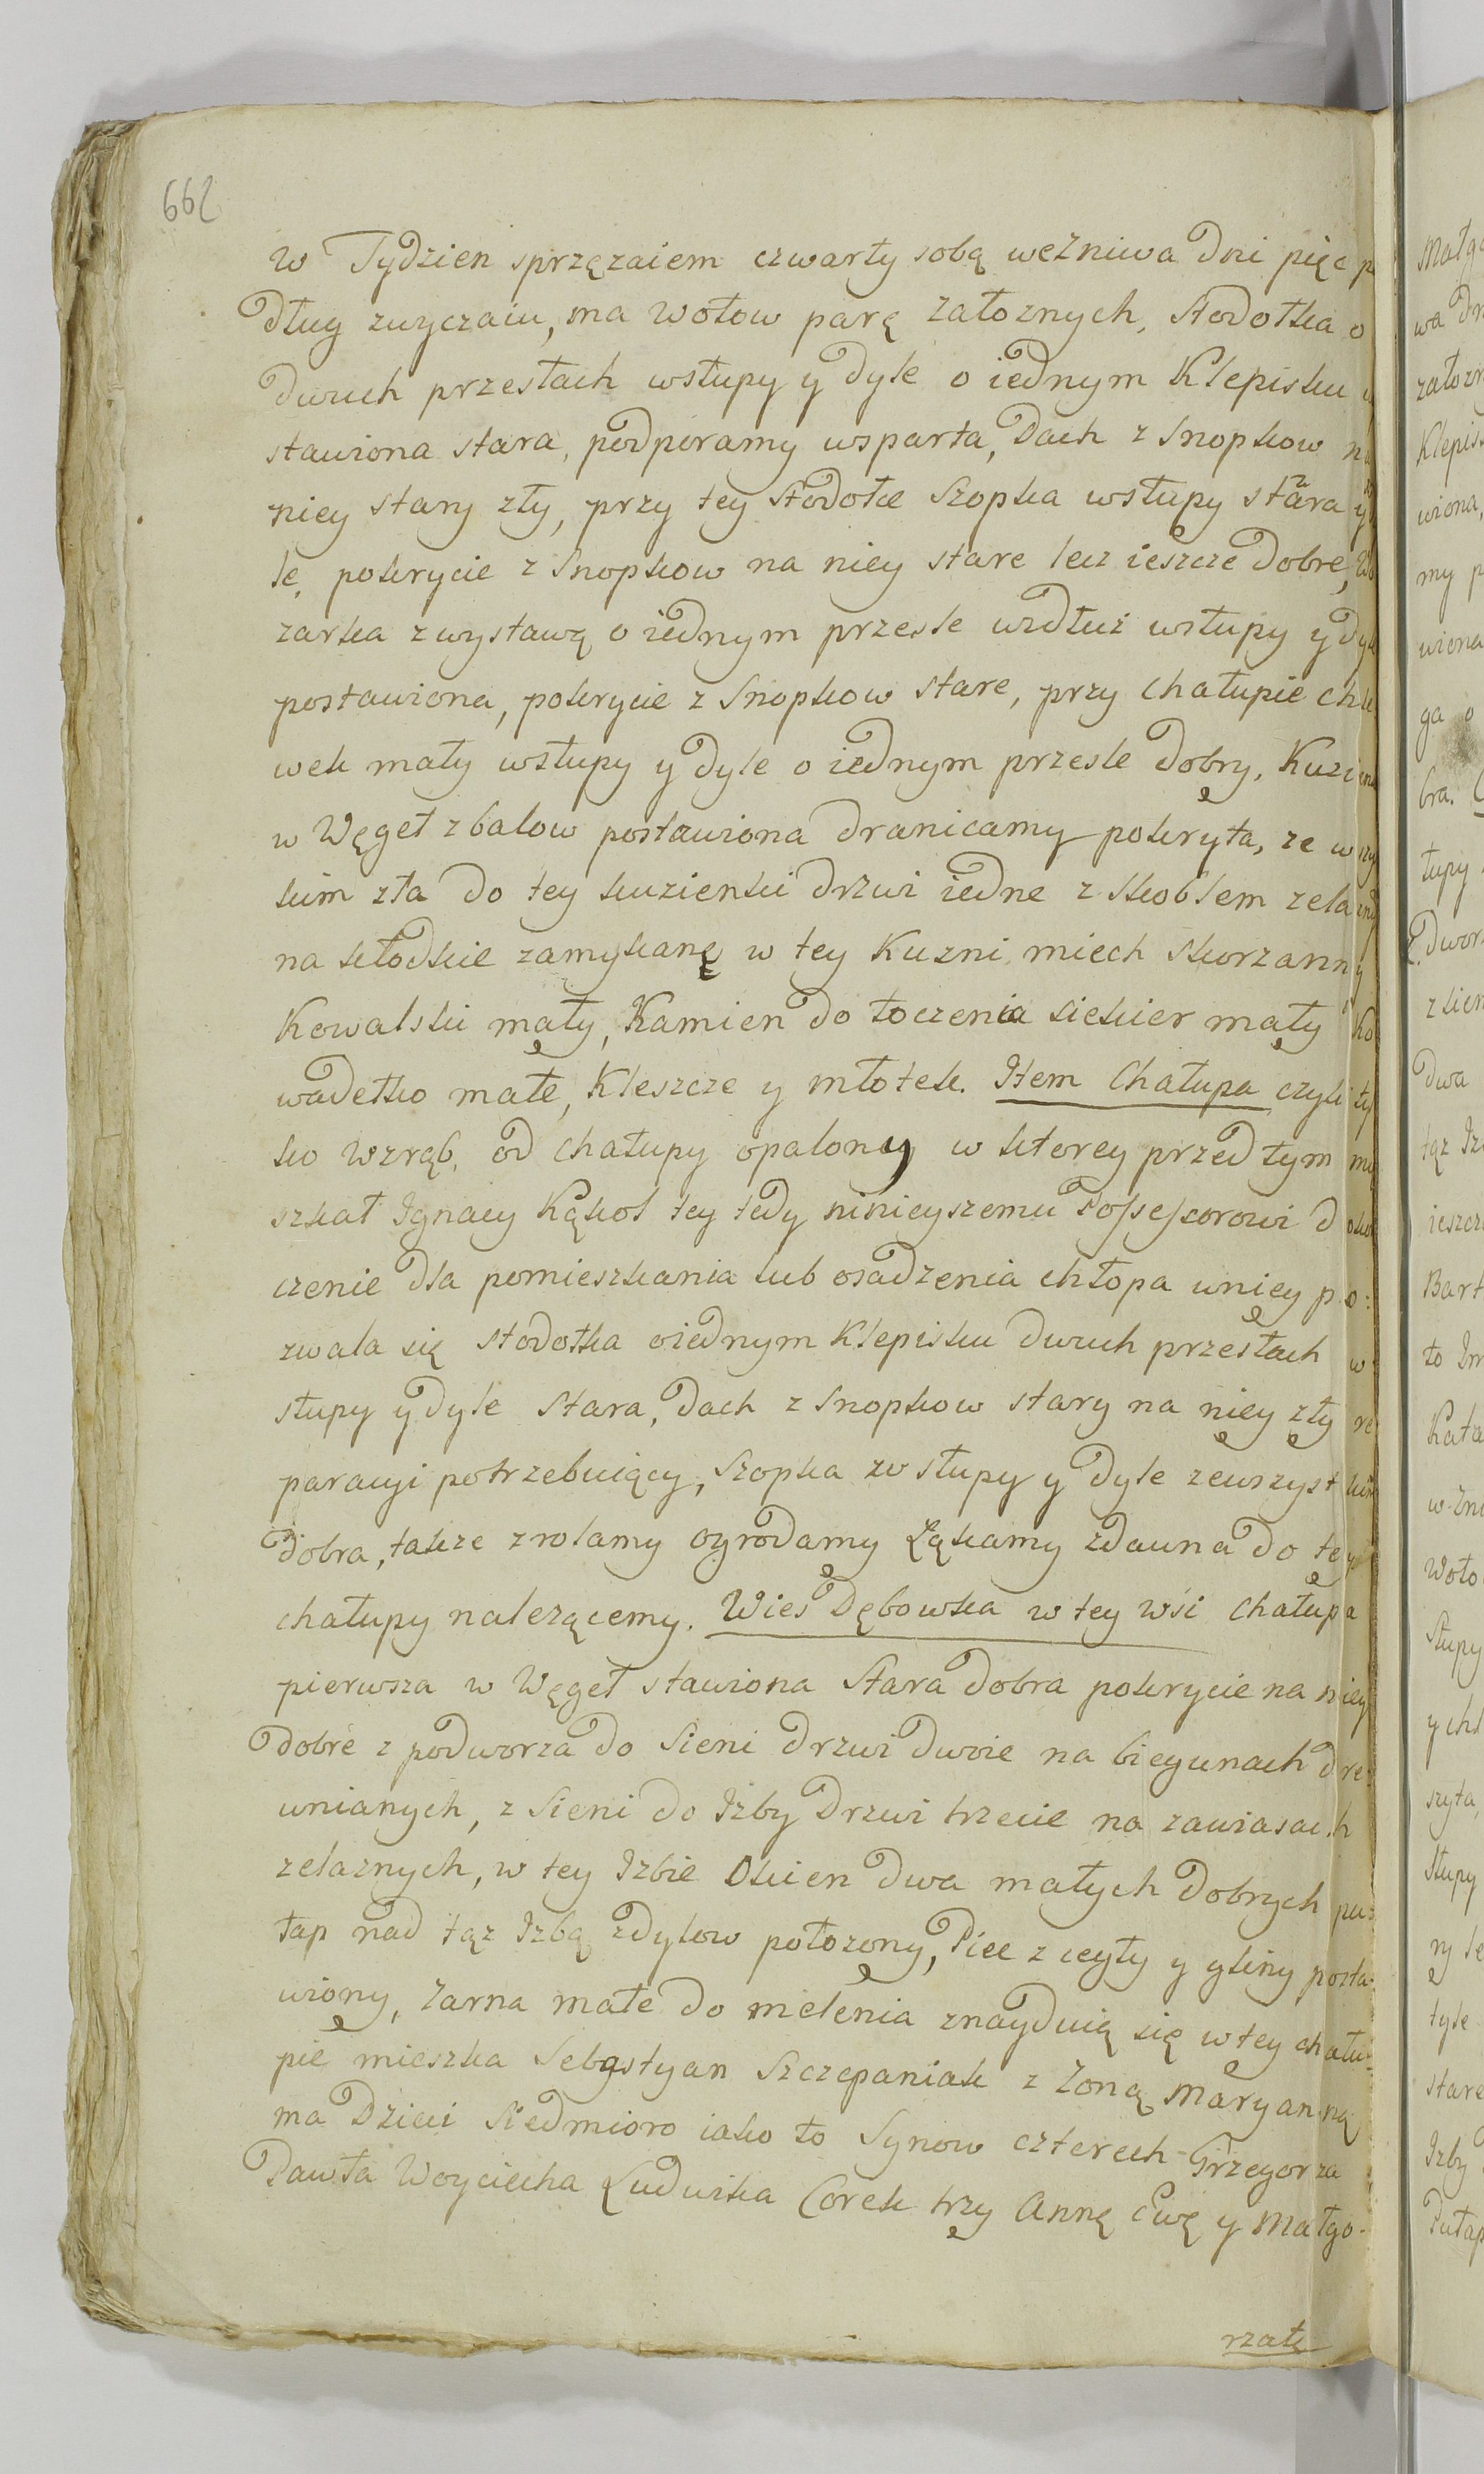 662
w Tydzien sprzęzaiem czwarty sobą weżniwa dni pięc p
dług zwyczaiu, ma wołow parę załoznych, Stodołka o
dwuch przesłach wsłupy y dyle o iednym Klepisku
stawiona stara, podporamy wsparta, Dach z Snopkow na
niey stary zły, przy tey stodołce Szopka wsłupy stara y
le, pokrycie z Snopkow na niey stare lecz ieszcze dobre,
zarka zwystawą o iednym przesle wzdłuż wsłupy y dyle
postawiona, pokrycie z Snopkow stare, przy chałupie chle
wek mały wsłupy y dyle o iednym przesle dobry, Kuzienka
w Węgeł zbalow postawiona dranicamy pokryta, ze wszy
kim zła do tey kuzienki drzwi iedne z skoblem zelazny
na kłodkie zamykanę w tey Kuzni miech skorzanny
Kowalski mały, Kamien do toczenia siekier mały Ko
wadełko małe, Kleszcze y młotek. Item Chałupa czyli tyl
ko wzrąb, od chałupy opaloney w ktorey przed tym mie
szkał Ignacy Kąkol tey tedy ninieyszemu Possessorowi dokon
czenie dla pomieszkania lub osadzenia chłopa wniey po:
zwala się stodołka oiednym Klepisku dwuch przesłach w
słupy y dyle stara, dach z snopkow stary na niey zły re
paracyi potrzebuiący, Szopka w słupy y dyle zewszystkim
dobra, takze zrolamy ogrodamy Łąkamy zdawna do tey
chałupy nalezącemy. Wies Dębowka w tey wśi chałupa
pierwsza w Węgeł stawiona Stara dobra pokrycie na niey
dobre z podworza do Sieni drzwi dwoie na biegunach dre
wnianych, z Sieni do Izby Drzwi trzecie na zawiasach
zelaznych, w tey Izbie Okien dwa małych dobrych pu:
łap nad tąz Izbą zdylow połozony, Piec z cegły y gliny posta:
wiony, Zarna małe do mielenia znayduią się wtey chału:
pie mieszka Sebastyan Szczepaniak z Zoną Maryanną
ma Dzieci Siedmioro iako to Synow czterech Grzegorza
Pawła Woyciecha Ludwika Corek trzy Annę Ewę y Małgo-
rzatę